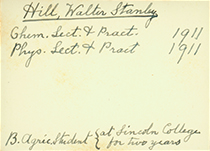 Hill, Walter Stanley
Chem. Sect. & Pract. 1911
Phys. Sect. & Pract 1911
B. Agric. Student { at Lincoln College
for two years